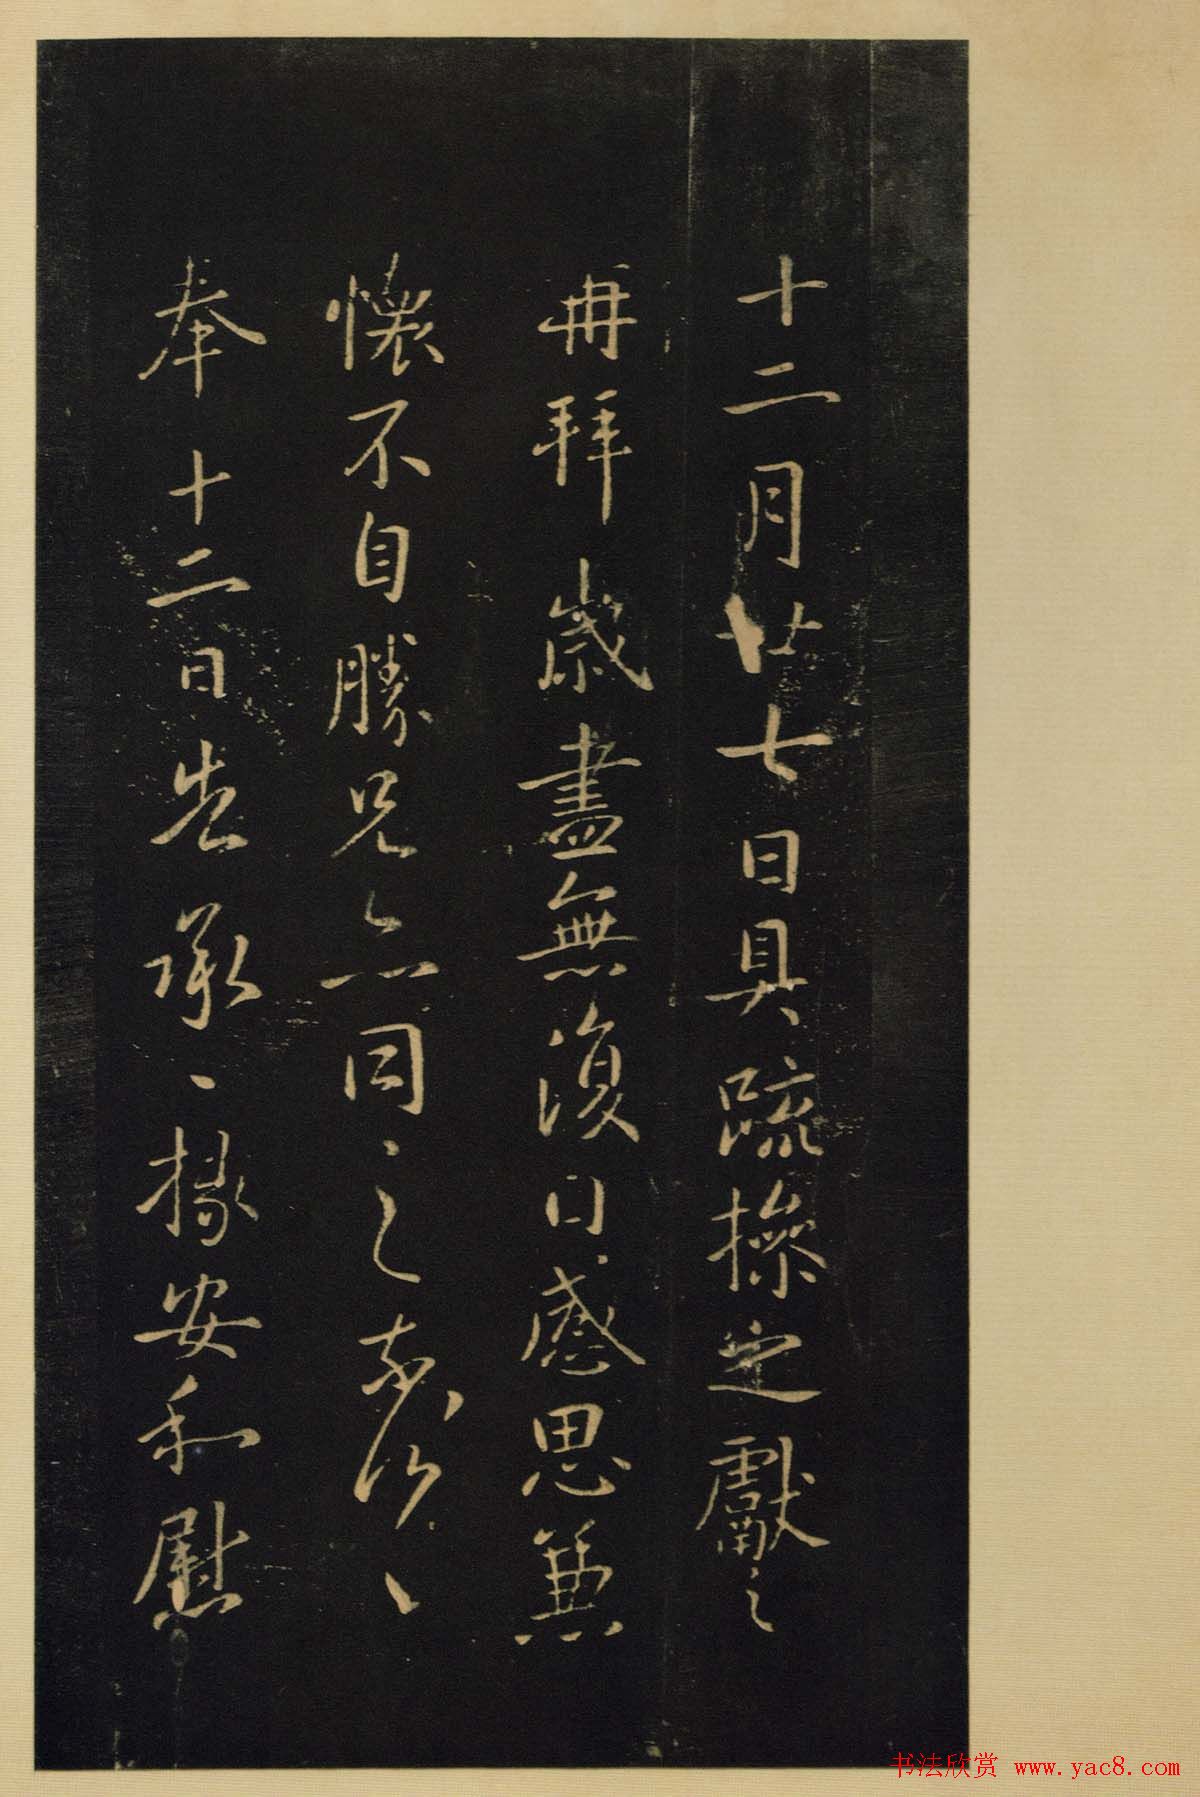 十二月廿七日具疏操之獻之
再拜歲盡無復日感思兼
懷不自勝兄亦同之
奉十二日告承掾安和慰
书法欣赏 www.yac8.com